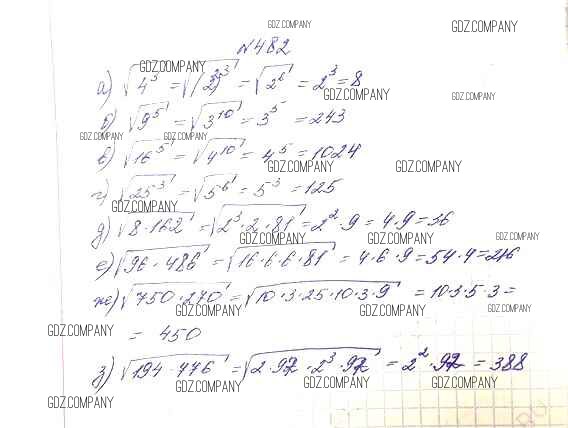 GDZ.COMPANY GDZ.COMPANY
№482
GDZ.COMPANY
а) √4³ = √(2²)³ = √2⁶ = 2³ = 8
GDZ.COMPANY GDZ.COMPANY
б) √9⁵ = √3¹⁰ = 3⁵ = 243
GDZ.COMPANY GDZ.COMPANY
в) √16⁵ = √4¹⁰ = 4⁵ = 1024
GDZ.COMPANY GDZ.COMPANY
г) √25³ = √5⁶ = 5³ = 125
GDZ.COMPANY
д) √8·162 = √2³·2·81 = 2²·9 = 4·9 = 36
GDZ.COMPANY GDZ.COMPANY GDZ.COMPANY
е) √96·486 = √16·6·6·81 = 4·6·9 = 54·4 = 216
ж) √750·270 = √10·3·25·10·3·9 = 10·3·5·3 =
GDZ.COMPANY GDZ.COMPANY GDZ.COMPANY
= 450
GDZ.COMPANY GDZ.COMPANY GDZ.COMPANY
з) √194·776 = √2·97·2³·97 = 2²·97 = 388
GDZ.COMPANY GDZ.COMPANY
GDZ.COMPANY